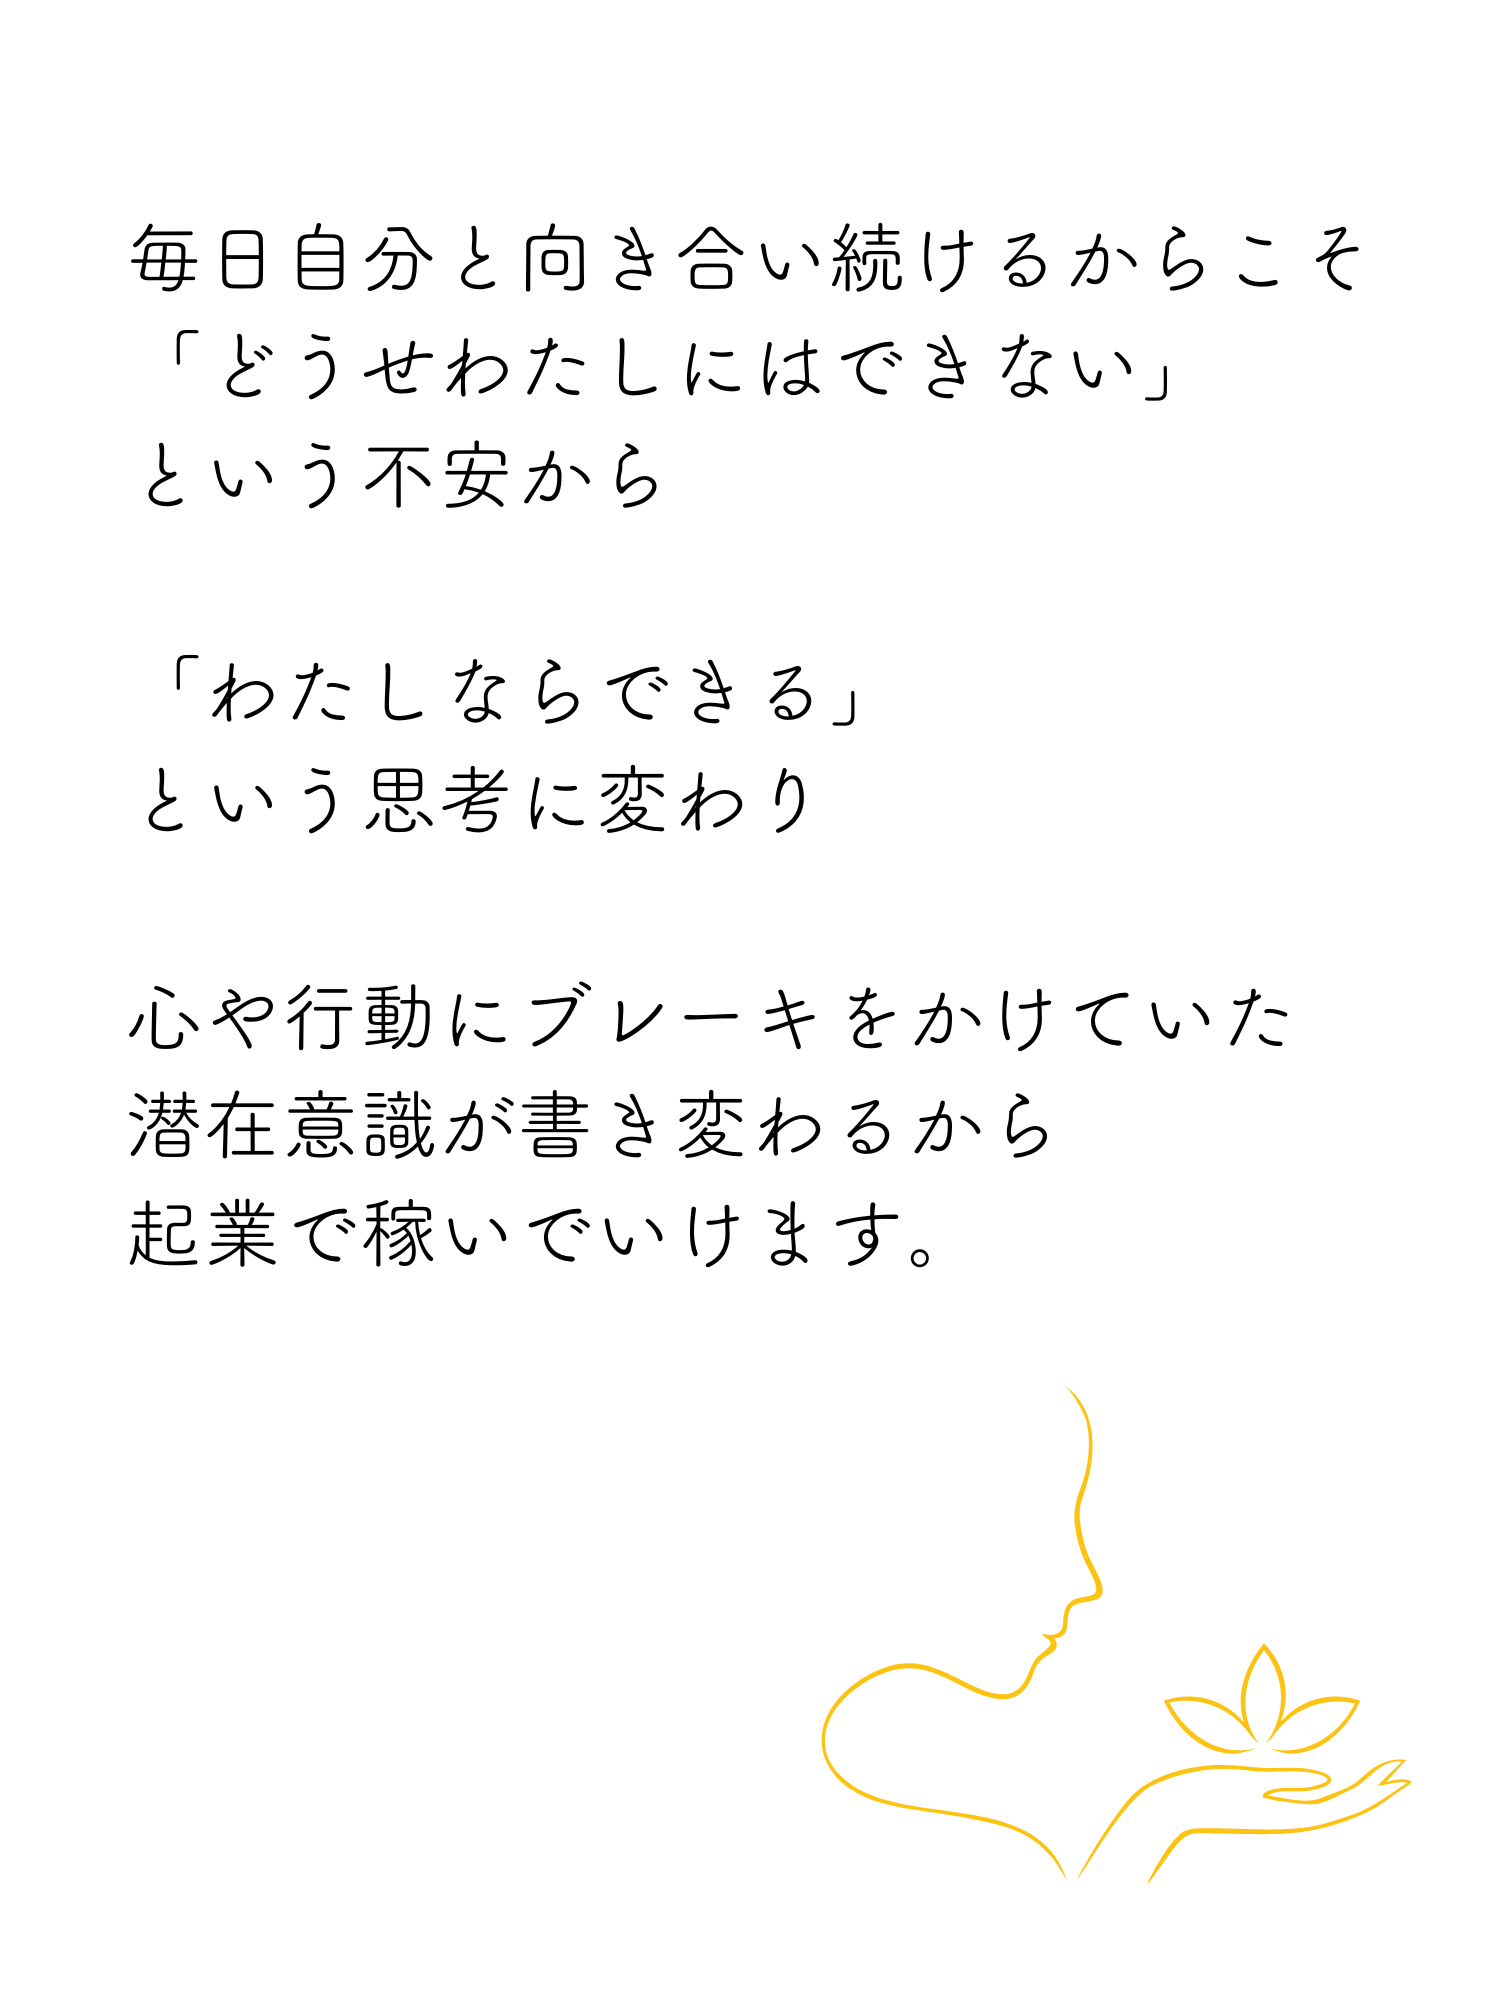 毎日自分と向き合い続けるからこそ
「どうせわたしにはできない」
という不安から
「わたしならできる」
という思考に変わり
心や行動にブレーキをかけていた
潜在意識が書き変わるから
起業で稼いでいけます。